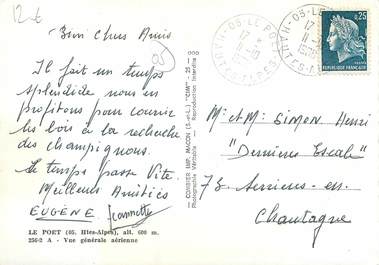 12€
Bien Chers Amis
Il fait un temps
splendide nous en
profitons pour courir
les bois à la recherche
des champignons.
Le temps passe Vite.
Meilleures Amitiés
EUGÈNE Jeannette
LE POET (05. Htes-Alpes), alt. 600 m.
256-2 A - Vue générale aérienne
COMBIER IMP. MACON (S.-et-L.) "CIM"
Photographie Véritable - Reproduction Interdite
05-LE POET
HAUTES-ALPES
17
11-10
05-LE PO
HAUTES-A
17
11
0,25
REPUBLIQUE FRANÇAISE
Mr et Me SIMON Henri
"Dernière Escale"
73 Serrières-en-
Chautagne